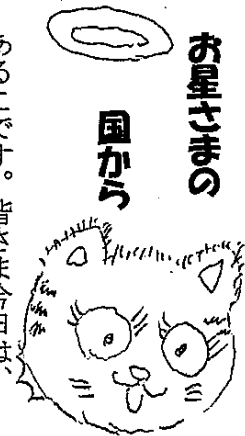 お星さまの
国から
あるこです。皆さま今日は、